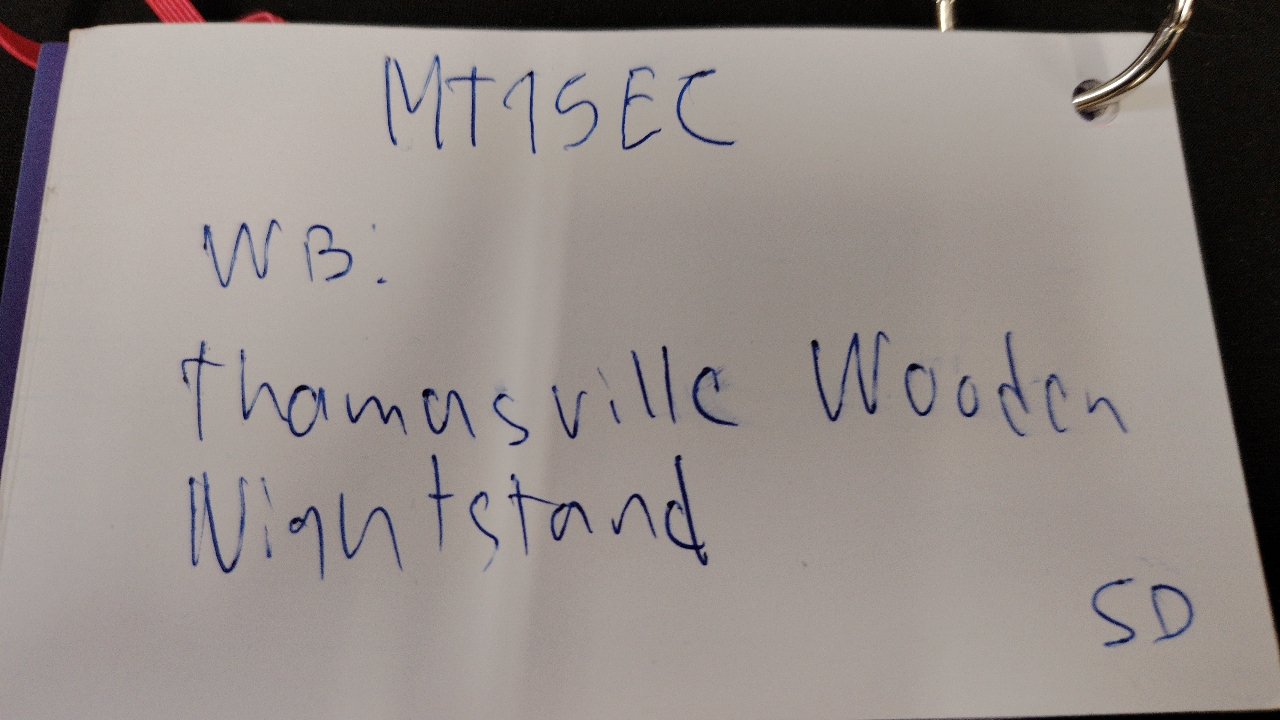 MT15EC
WB:
Thomasville Wooden
Nightstand
SD